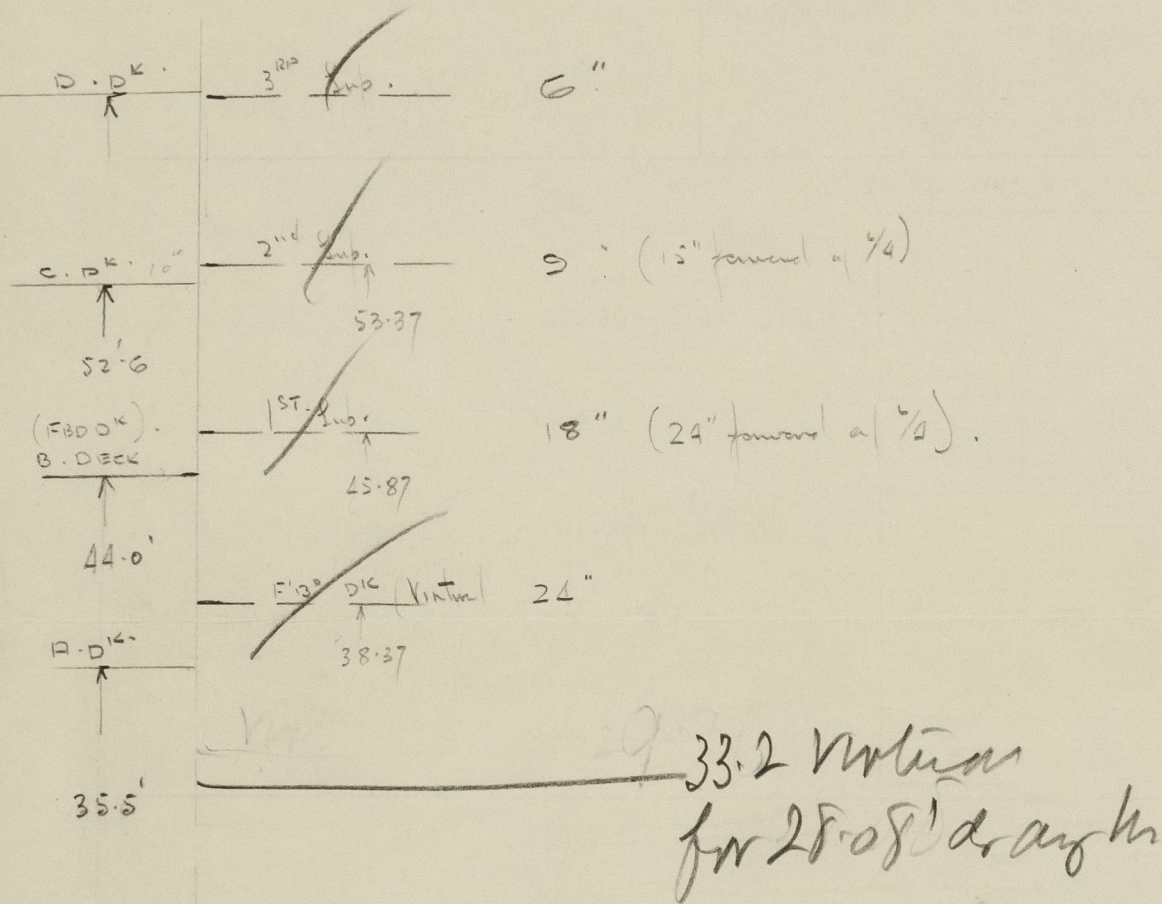 D. DK.
3RD Sup.
6"
C. DK. 10"
2nd Sup.
9" (15" forward of L/4)
53.37
52'-6
(FBD DK).
B. DECK
1ST. Sup.
18" (24" forward of L/4).
45.87
44.0'
F'BD DK (Virtual
24"
A. DK.
38.37
33.2
35.5'
for 28.08'